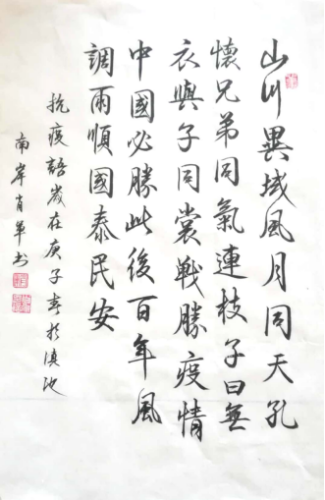 山川異域風月同天孔
懷兄弟同氣連枝子曰無
衣與子同裳戰勝疫情
中國必勝此後百年風
調雨順國泰民安
抗疫語歲在庚子春於滇池
南岸肖軍书